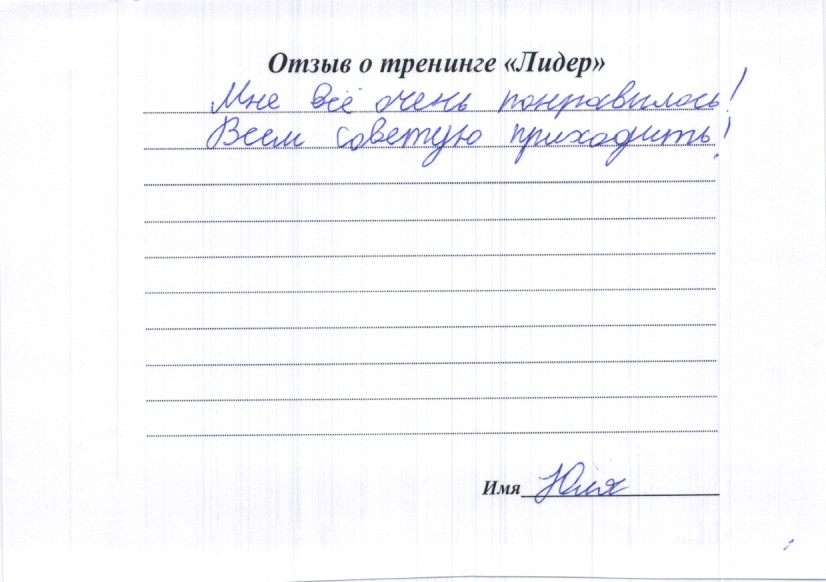 Отзыв о тренинге «Лидер»
Мне всё очень понравилось!
Всем советую приходить!
Имя Юля